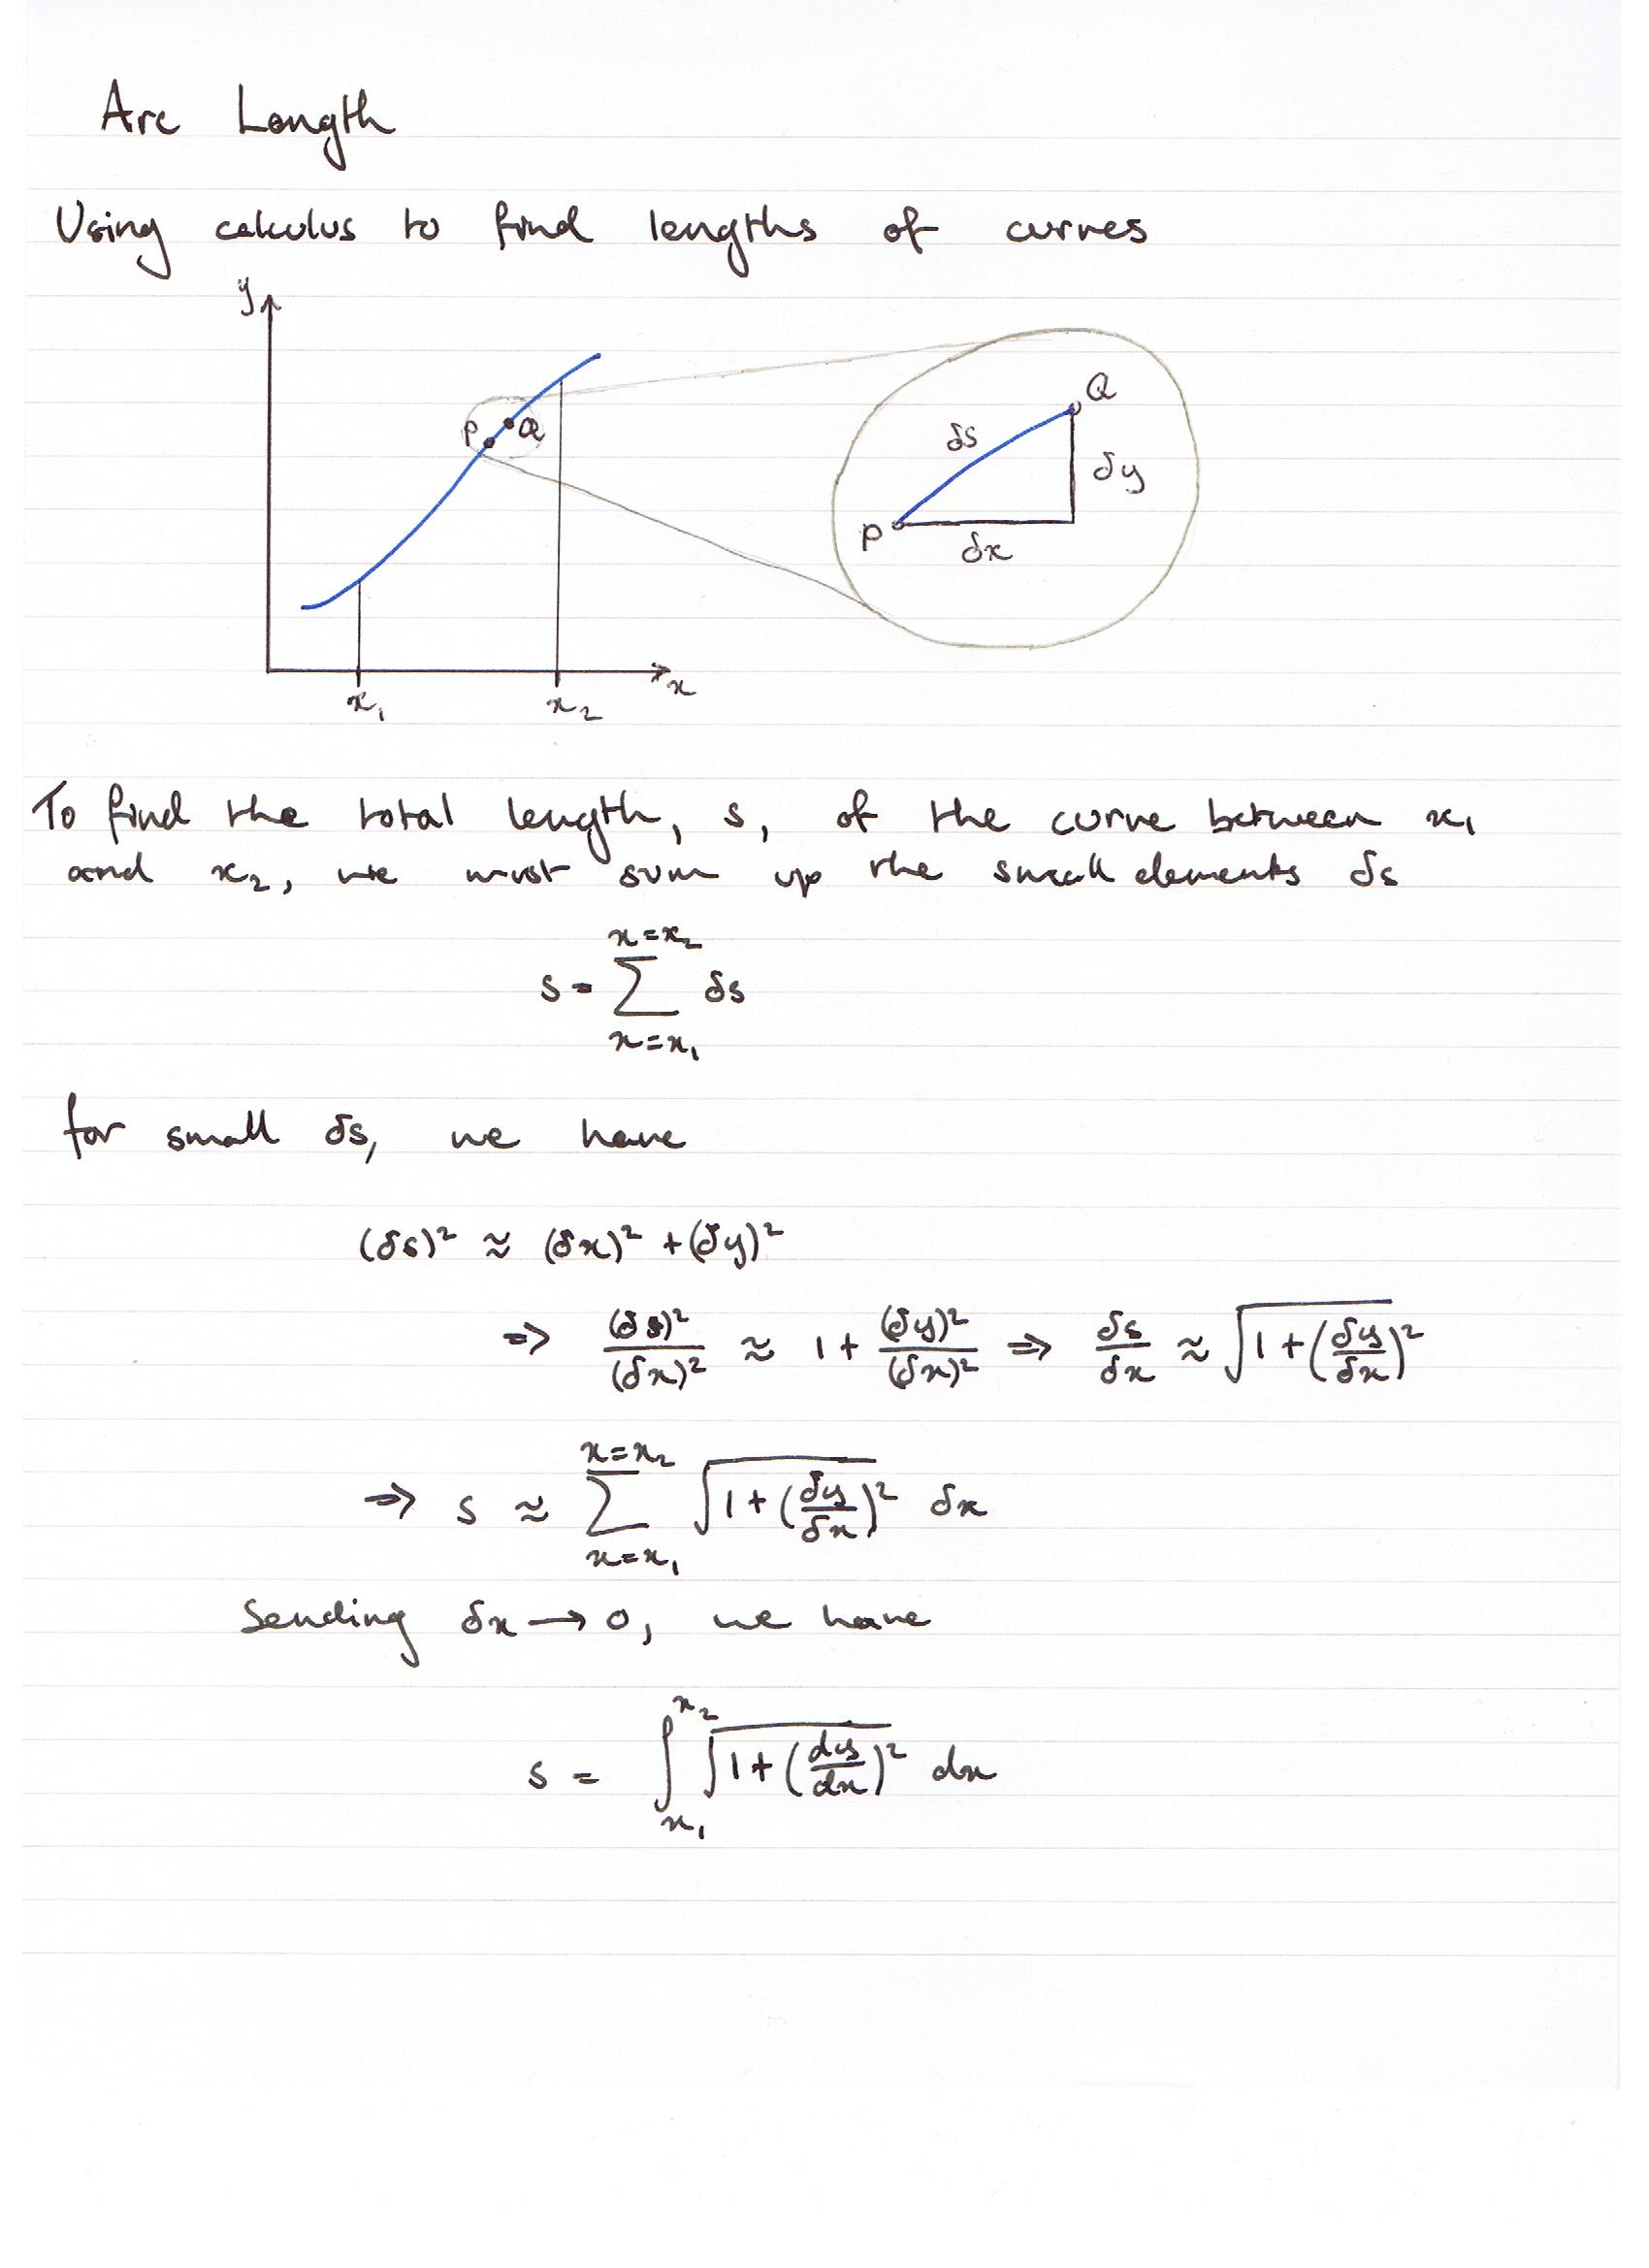 Arc Length
Using calculus to find lengths of curves
y
P Q
x₁ x₂ x
Q
δs
δy
P
δx
To find the total length, s, of the curve between x₁
and x₂, we must sum up the small elements δs
x=x₂
s = ∑ δs
x=x₁
for small δs, we have
(δs)² ≈ (δx)² + (δy)²
⇒ (δs)²/(δx)² ≈ 1 + (δy)²/(δx)² ⇒ δs/δx ≈ √(1 + (δy/δx)²)
x=x₂
⇒ s ≈ ∑ √(1 + (δy/δx)²) δx
x=x₁
Sending δx → 0, we have
x₂
s = ∫ √(1 + (dy/dx)²) dx
x₁